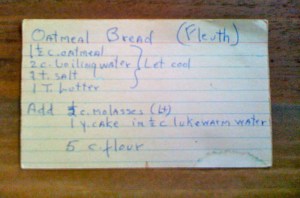 Oatmeal Bread (Fleuth)
1½ c. oatmeal
2 c. boiling water } Let cool
½ t. salt
1 T. butter
Add ½ c. molasses (Lt)
1 y. cake in ½ c lukewarm water
5 c. flour